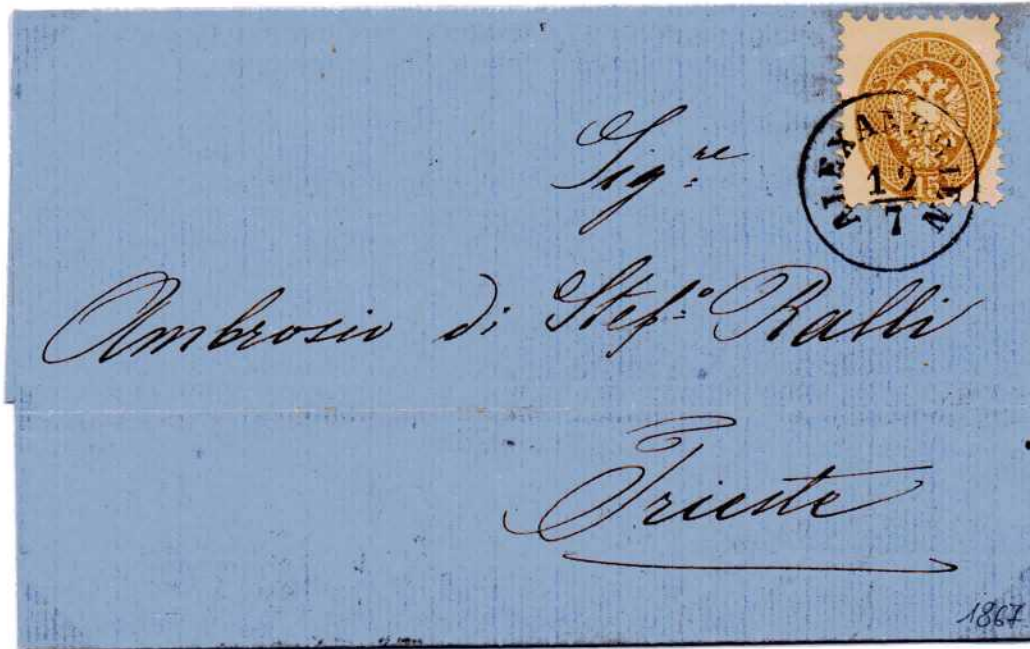 SOLDI
15
ALEXANDRIEN
12
7
Sig.re
Ambrosio di Stef.o Ralli
Trieste
1867